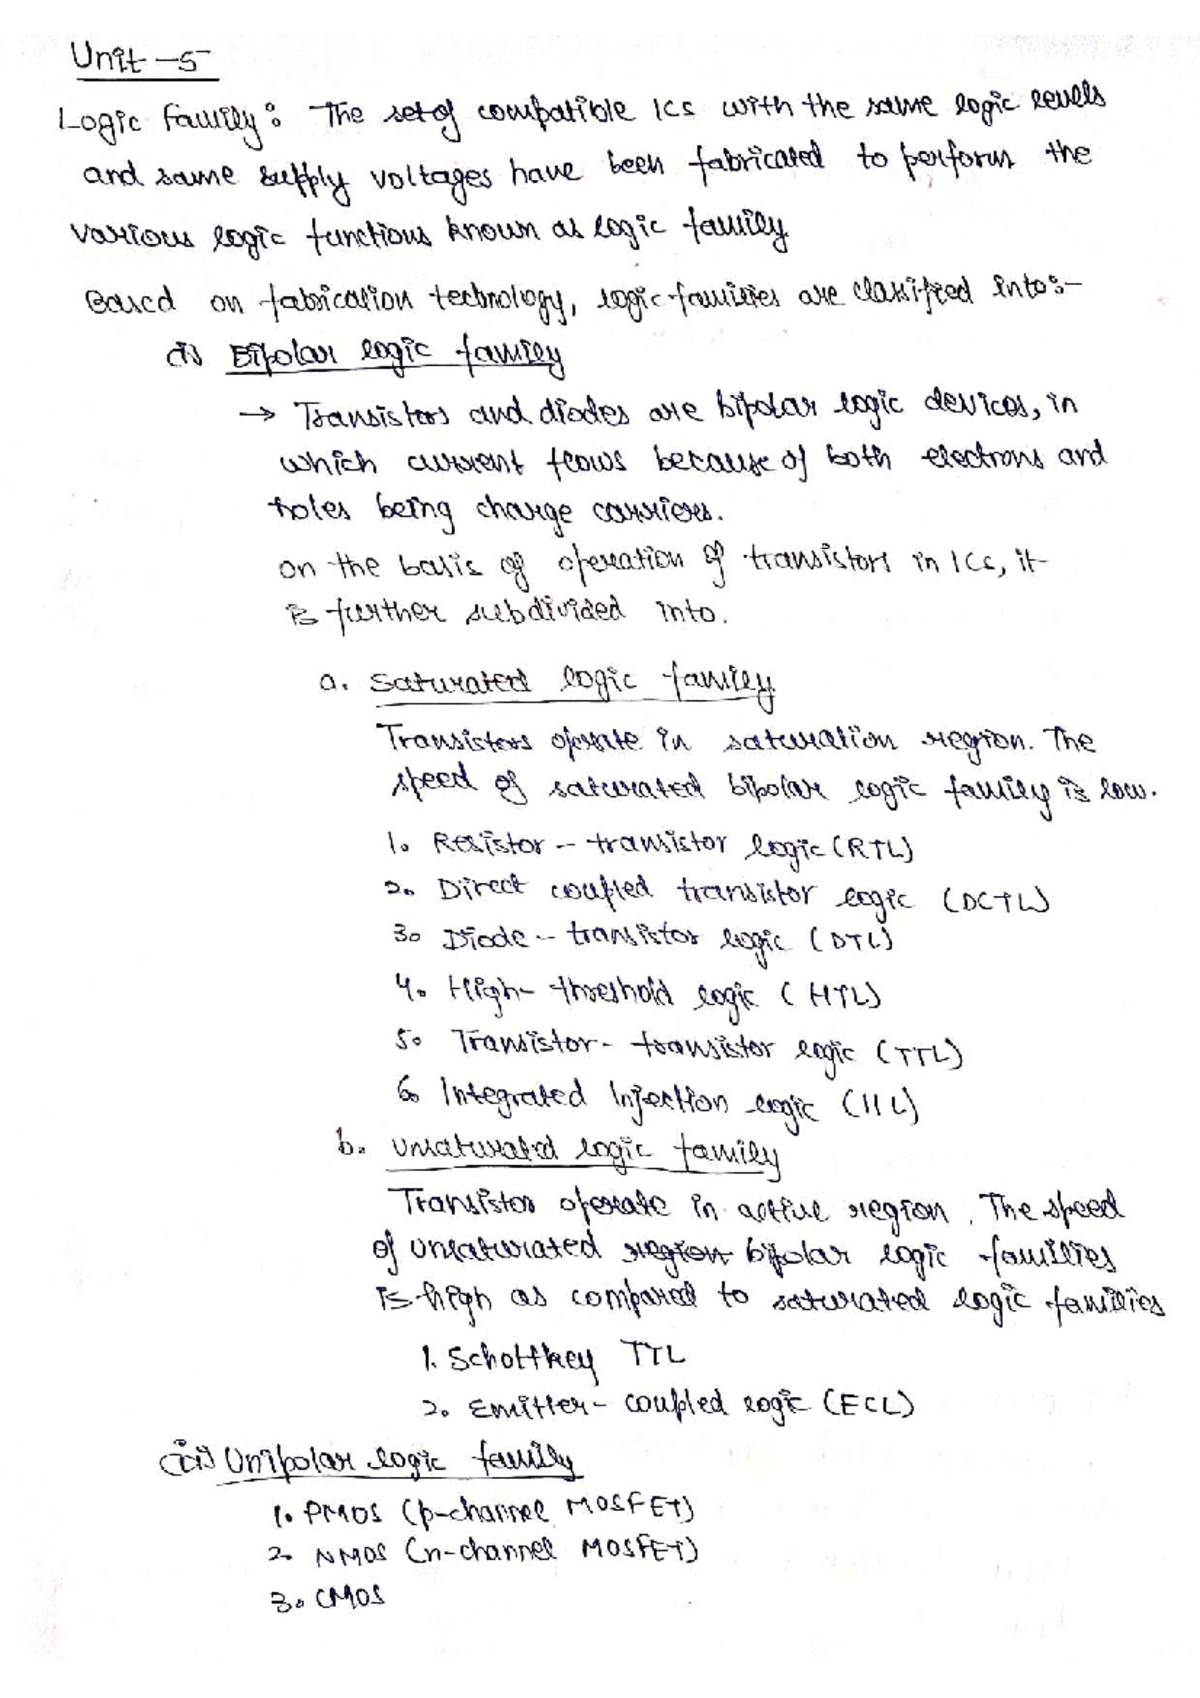 Unit-5
Logic family: The set of compatible ICs with the same logic levels
and same supply voltages have been fabricated to perform the
various logic functions known as logic family
Based on fabrication technology, logic families are classified into:-
(i) Bipolar logic family
→ Transistors and diodes are bipolar logic devices, in
which current flows because of both electrons and
holes being charge carriers.
on the basis of operation of transistors in ICs, it
is further subdivided into.
a. Saturated logic family
Transistors operate in saturation region. The
speed of saturated bipolar logic family is low.
1. Resistor - transistor logic (RTL)
2. Direct coupled transistor logic (DCTL)
3. Diode - transistor logic (DTL)
4. High- threshold logic (HTL)
5. Transistor- transistor logic (TTL)
6. Integrated Injection logic (IIL)
b. Unsaturated logic family
Transistor operate in active region. The speed
of unsaturated region bipolar logic families
is high as compared to saturated logic families
1. Schottkey TTL
2. Emitter- coupled logic (ECL)
(ii) Unipolar logic family
1. PMOS (p-channel MOSFET)
2. NMOS (n-channel MOSFET)
3. CMOS